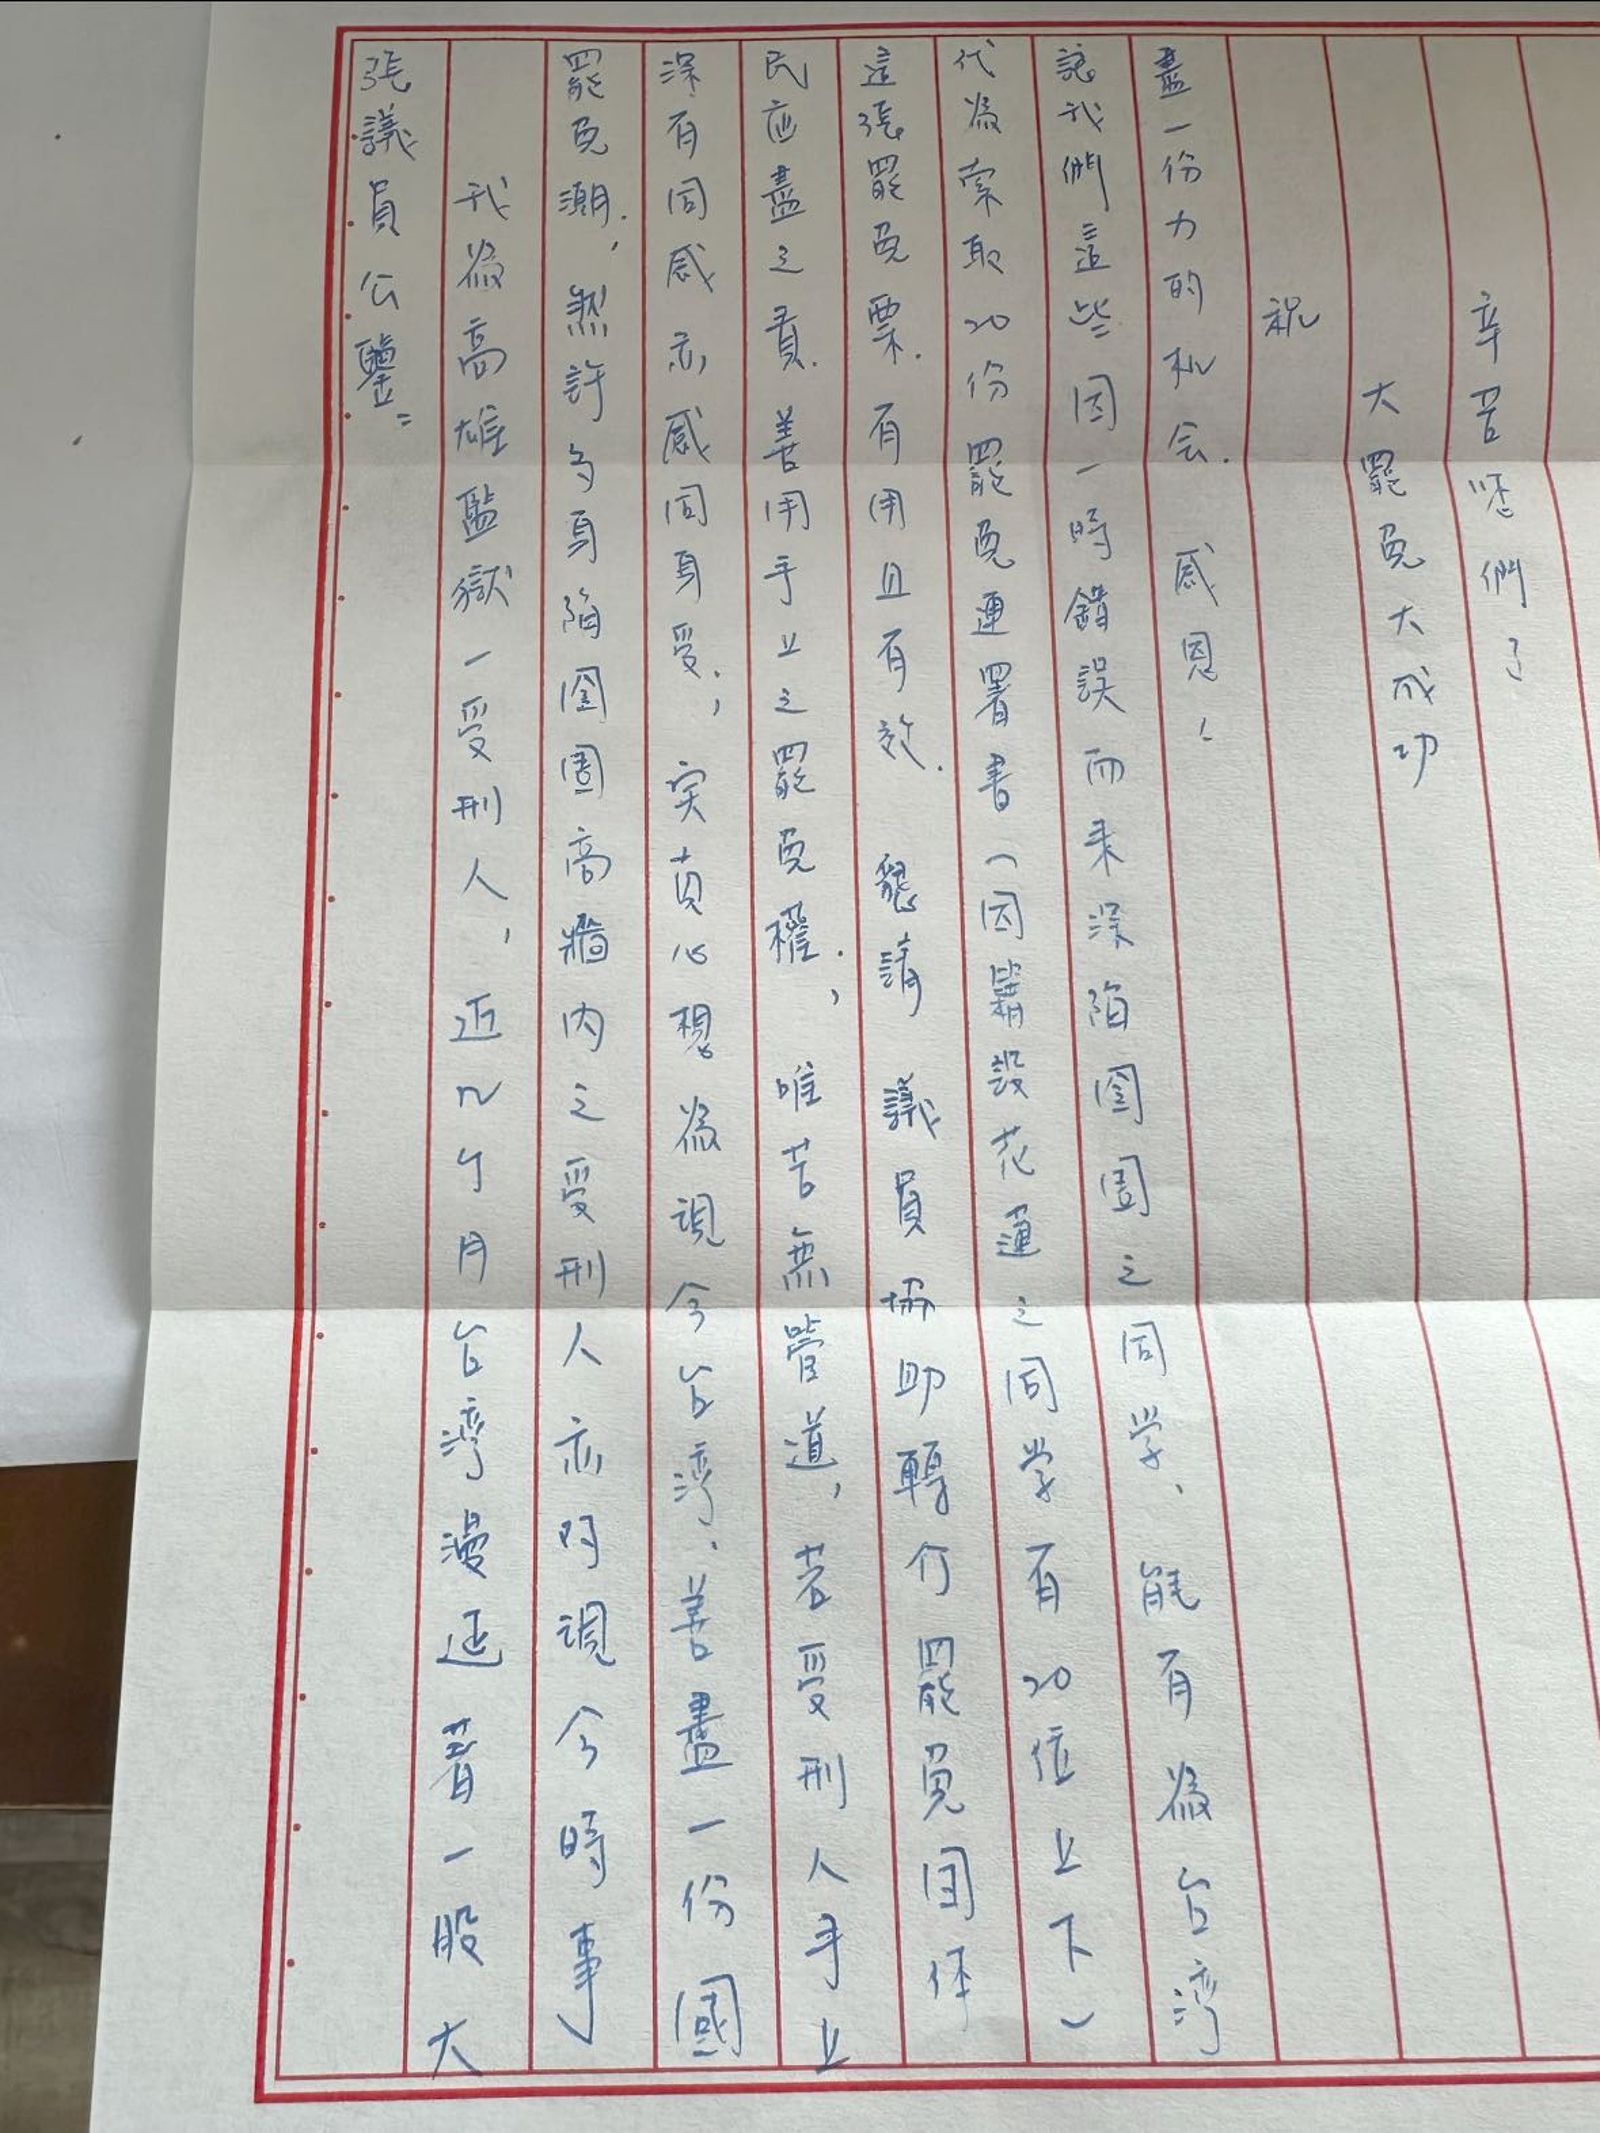 張議員公鑒：
我為高雄監獄一受刑人，近幾个月台湾漫延著一股大
罷免潮，然許多身陷囹圄高牆內之受刑人亦対現今時事
深有同感亦感同身受，实真心想為現今台湾，善盡一份國
民应盡之責．善用手上之罷免權，唯苦無管道，若受刑人手上
這張罷免票．有用且有效．懇請 議員協助轉介罷免団体
代為索取20份罷免連署書（因籍設花蓮之同学有20位上下）
讓我們這些因一時錯誤而来深陷囹圄之同学、能有為台湾
盡一份力的机会．感恩！
祝
大罷免大成功
辛苦您們了